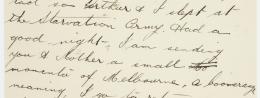 so further & I slept at
the Starvation Army. Had a
good night. I am sending
you & Mother a small
momento of Melbourne, a boomerang
meaning, I